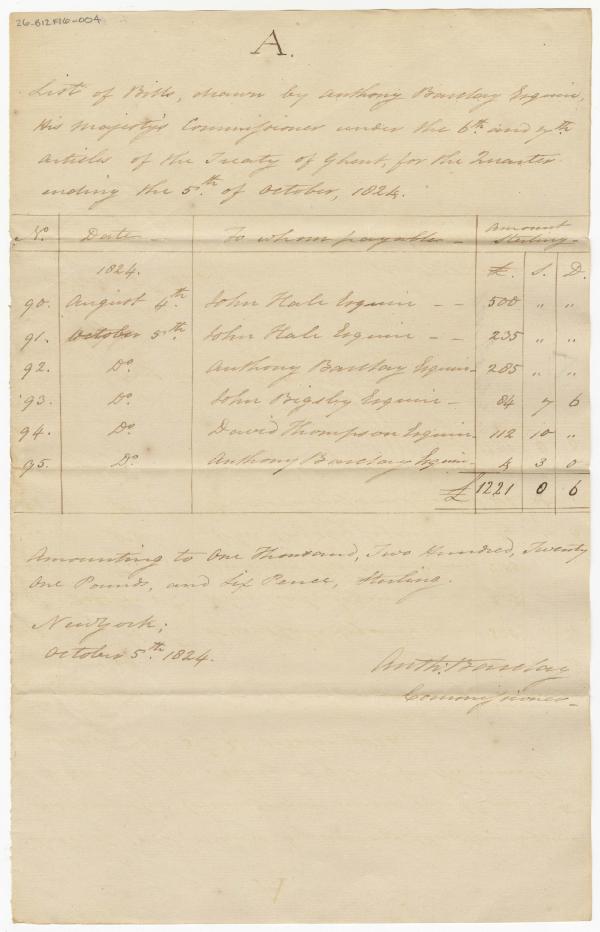 26-B12F16-004
A.
List of Bills, drawn by Anthony Barclay Esquire,
His Majesty's Commissioner under the 6th. and 7th.
articles of the Treaty of Ghent, for the Quarter
ending the 5th. of October, 1824.
No. Date - To whom payable - Amount Sterling -
1824. £. S. D.
90. August 4th. John Hale Esquire - - 500 " "
91. October 5th. John Hale Esquire - - 235 " "
92. Do. Anthony Barclay Esquire - 285 " "
93. Do. John Bigsby Esquire - 84 7 6
94. Do. David Thompson Esquire - 112 10 "
95. Do. Anthony Barclay Esquire - 4 3 0
£ 1221 0 6
Amounting to One Thousand, Two Hundred, Twenty
One Pounds, and Six Pence, Sterling.
New York;
October 5th. 1824.
Anth: Barclay
Commissioner -